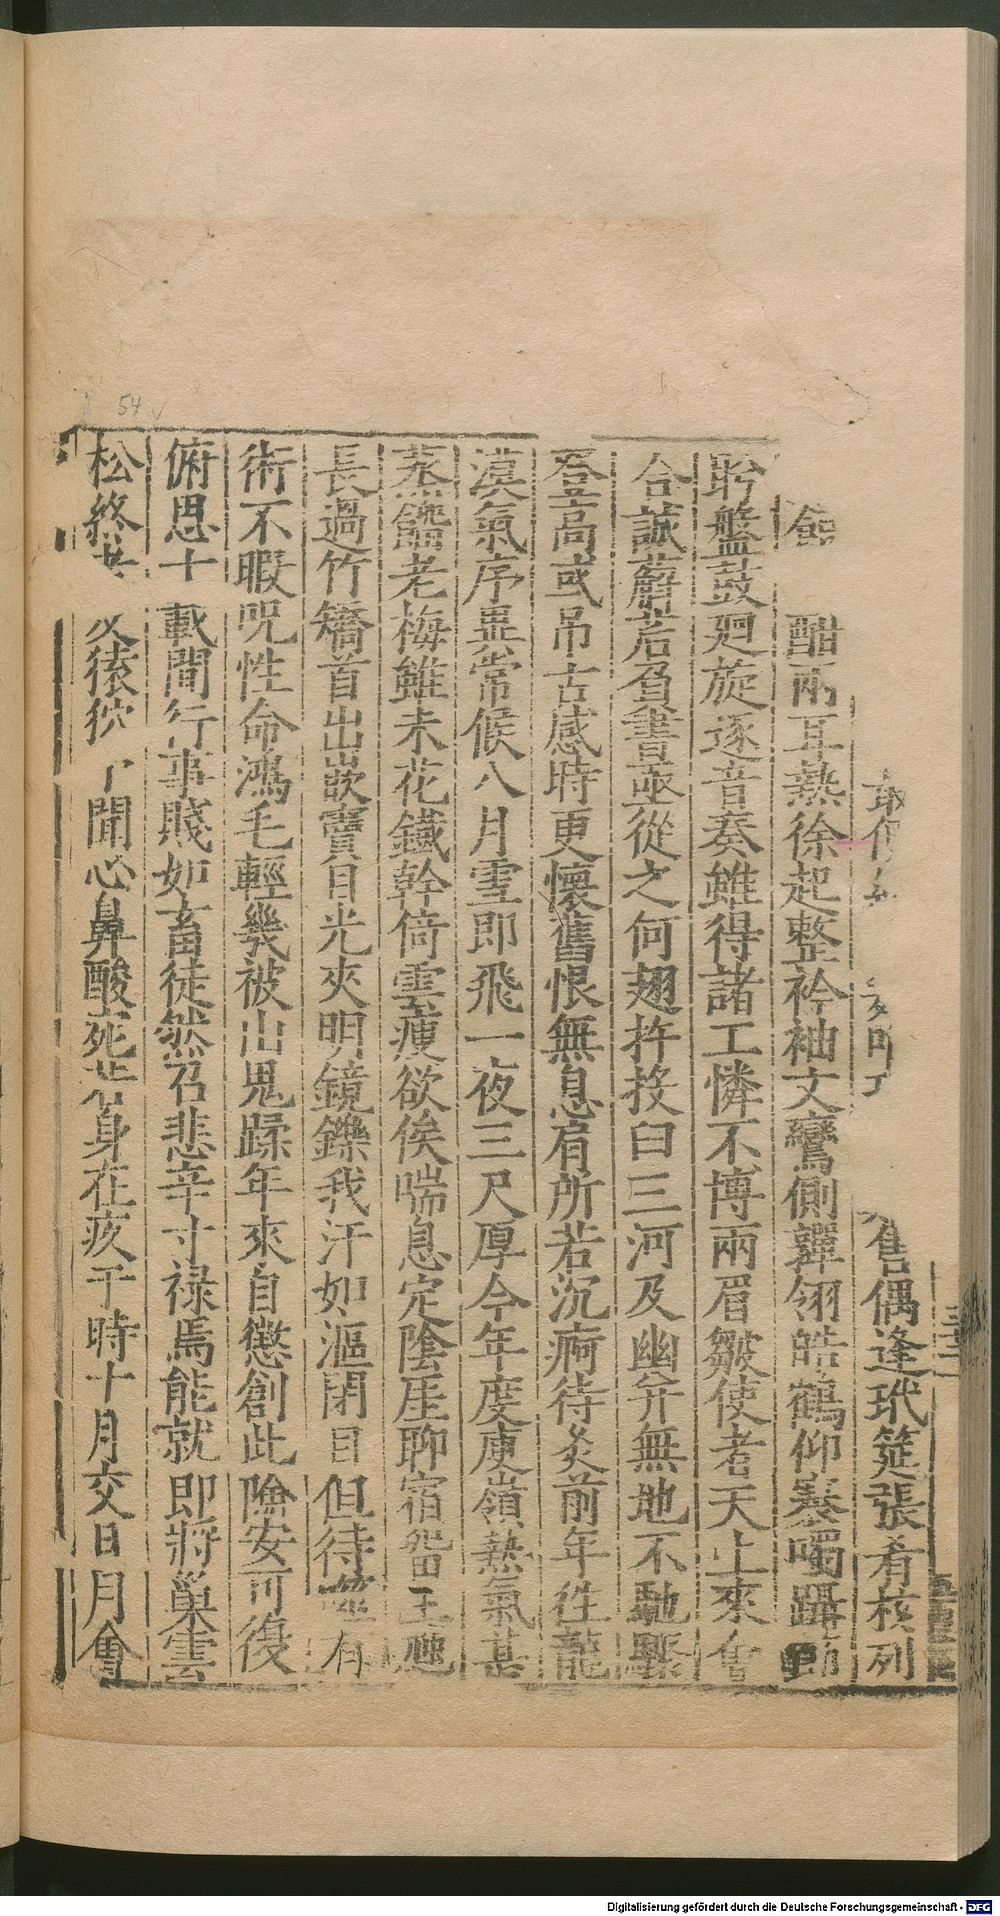 售偶逢玳筵張肴核列
酣兩耳熱徐起整衿袖文鸞側嚲翎皓鶴仰褰噣躡
盻盤鼓廻旋逐音奏雖得諸工憐不博兩眉皺使者天上來
合誠蔚若負書亟從之何趐拜投曰三河及幽并無地不馳驟
登高或吊古感時更懷舊恨無息肩所若沉痾待灸前年徃龍
漠氣序畺常候八月雪即飛一夜三尺厚今年度庾嶺熱氣甚
蒸餾老梅雖未花鐵幹倚雲瘦欲俟喘息定陰厓聊宿留
長過竹矯首出嵌竇目光夾明鏡鑠我汗如漚閉目但待
術不暇呪性命鴻毛輕幾被山鬼蹂年來自懲創此險安可復
俯思十載間行事賤如畜徒然召悲辛寸禄焉能就即將巢雲
松終 猿狖 聞心鼻酸死 身在疚于時十月交日月會
54
Digitalisierung gefördert durch die Deutsche Forschungsgemeinschaft - DFG